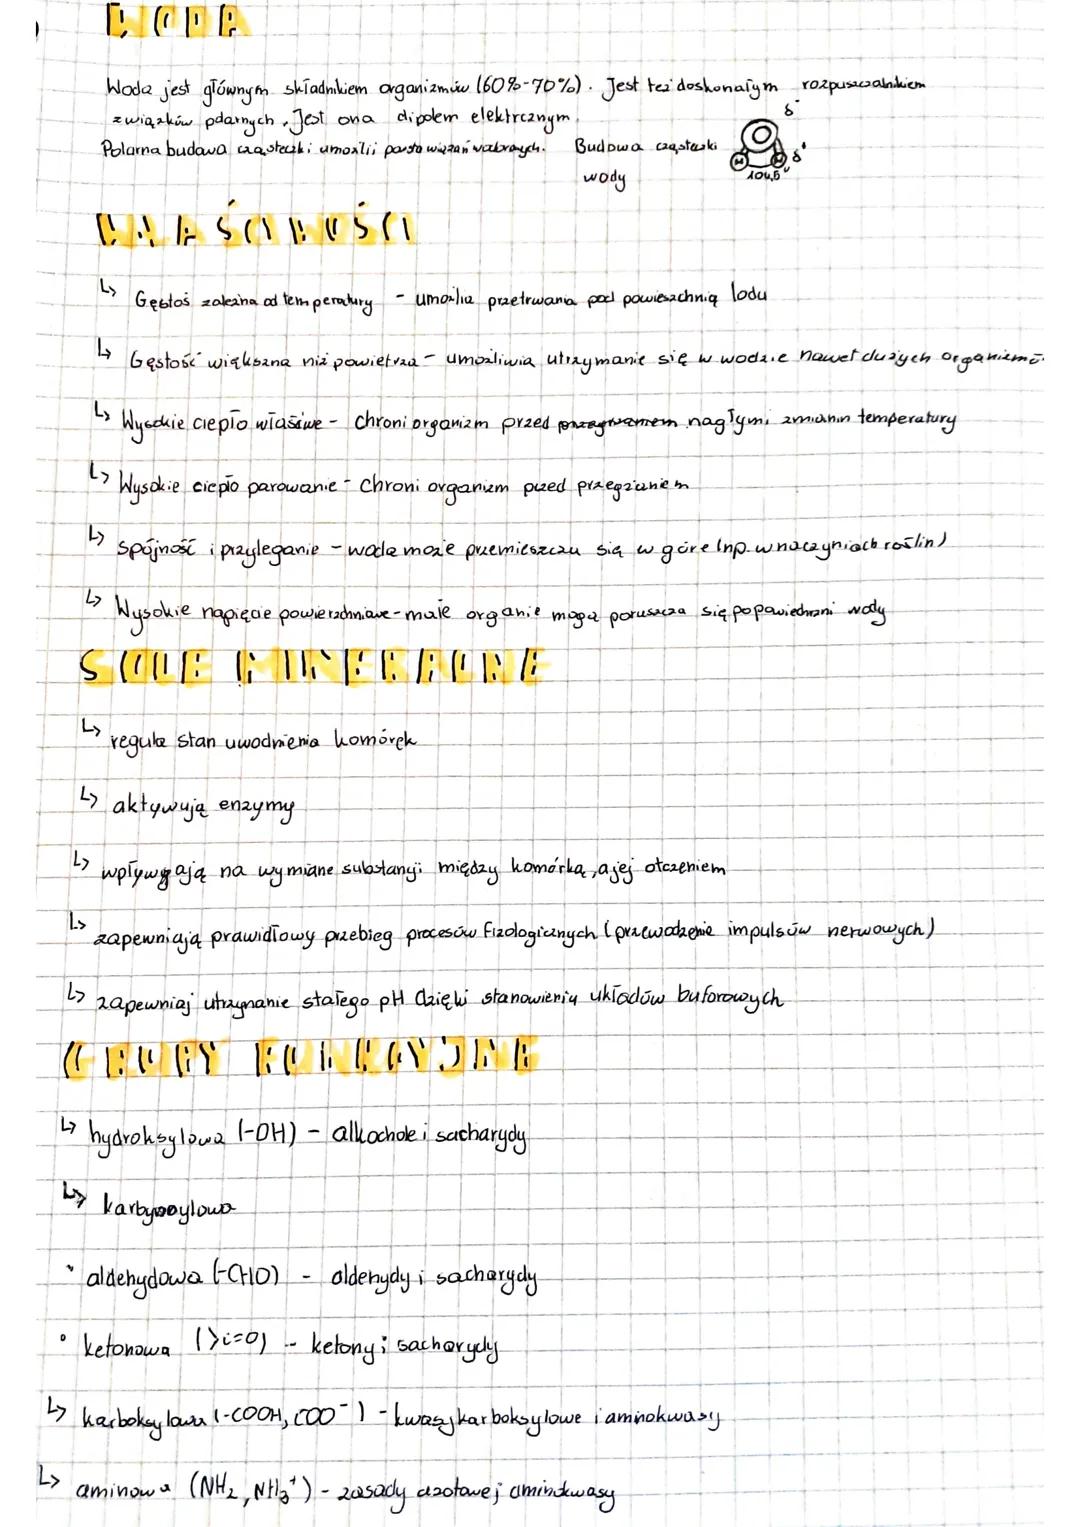 WODA
Woda jest głównym składnikiem organizmów (60%-70%). Jest też doskonałym rozpuszczalnikiem
związków pdarnych. Jest ona dipolem elektrcznym.
δ⁻
Polarna budowa cząsteczki umożlii wiązań Budowa cząsteczki
wody
H H δ⁺
104,5°
WŁAŚCIWOŚCI
↳ Gęstoś zależna od temperatury - umożlia przetrwania pod powieszchnią lodu
↳ Gęstość większna niż powietrza - umożliwia utrzymanie się w wodzie nawet dużych organizmó
↳ Wysokie ciepło właśiwe - chroni organizm przed nagłymi zmianm temperatury
↳ Wysokie ciepło parowanie - chroni organizm pized przegrzaniem
↳ spójność i przyleganie - woda może przemieszczau się w góre (np. w naczyniach roślin)
↳ Wysokie napięcie powierzchniowe - małe organie moga porusacza się po powiedrzni wody
SOLE MINERALNE
↳ regula stan uwodnienia komórek
↳ aktywują enzymy
↳ wpływają na wymiane substanji między komórką, a jej otczeniem
↳ zapewniają prawidłowy przebieg procesów fizologicznych (przewodzenie impulsów nerwowych)
↳ zapewniaj utrzymanie stałego pH dzięki stanowieniu układów buforowych
GRUPY FUNKCYJNE
↳ hydroksylowa (-OH) - alkochole i sacharydy
↳ karbynoylowa
• aldehydowa (-CHO) - aldehydy i sacharydy
• ketonowa (>c=0) - ketony i sacharydy
↳ karboksylowa (-COOH, COO⁻) - kwasy karboksylowe i aminokwasy
↳ aminowa (NH₂, NH₃⁺) - zasady azotowe j aminokwasy